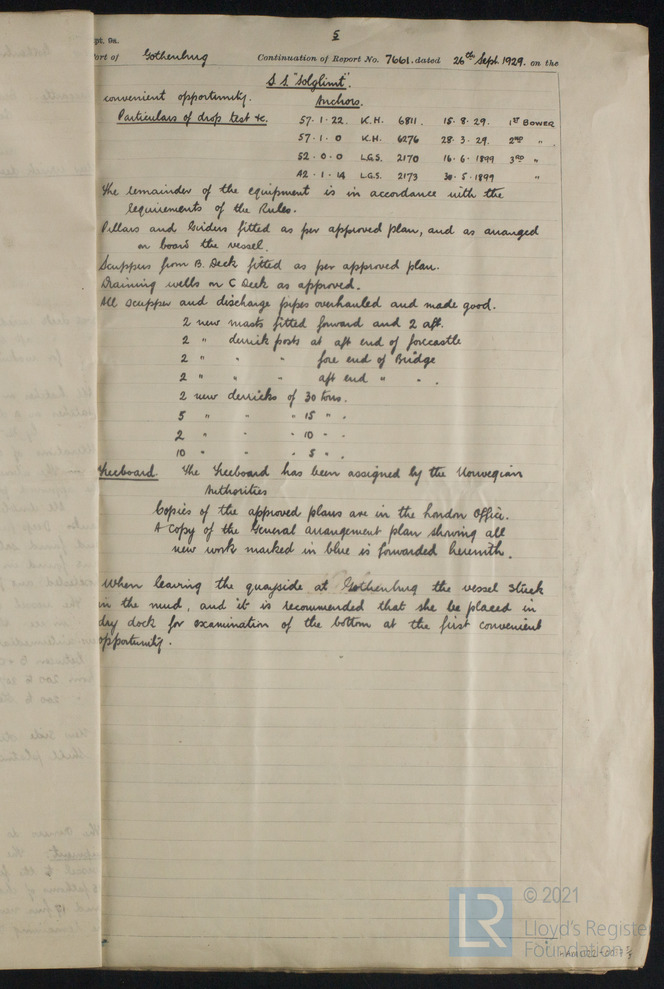 5
pt. 9a.
ort of Gothenburg Continuation of Report No. 7661. dated 26th Sept. 1929. on the
S.S. "Solglimt".
convenient opportunity. Anchors.
Particulars of drop test &c. 57 . 1 . 22. K.H. 6811. 15. 8. 29. 1ST BOWER
57 . 1 . 0 K.H. 6276 28. 3. 29. 2ND "
52 . 0 . 0 L.G.S. 2170 16. 6. 1899 3RD "
42 . 1 . 14 L.G.S. 2173 30. 5. 1899 "
The remainder of the equipment is in accordance with the
requirements of the Rules.
Pillars and Girders fitted as per approved plan, and as arranged
on board the vessel.
Scuppers from B. Deck fitted as per approved plan.
Draining wells on C Deck as approved.
All scupper and discharge pipes overhauled and made good.
2 new masts fitted forward and 2 aft.
2 " derrick posts at aft end of forecastle
2 " " " fore end of Bridge
2 " " " aft end " " .
2 new derricks of 30 tons.
5 " " " 15 " .
2 " " " 10 " .
10 " " " 5 " .
Freeboard. The Freeboard has been assigned by the Norwegian
Authorities
Copies of the approved plans are in the London Office.
A copy of the General arrangement plan showing all
new work marked in blue is forwarded herewith.
When leaving the quayside at Gothenburg the vessel stuck
in the mud, and it is recommended that she be placed in
dry dock for examination of the bottom at the first convenient
opportunity.
LR
© 2021
Lloyd's Register
Foundation